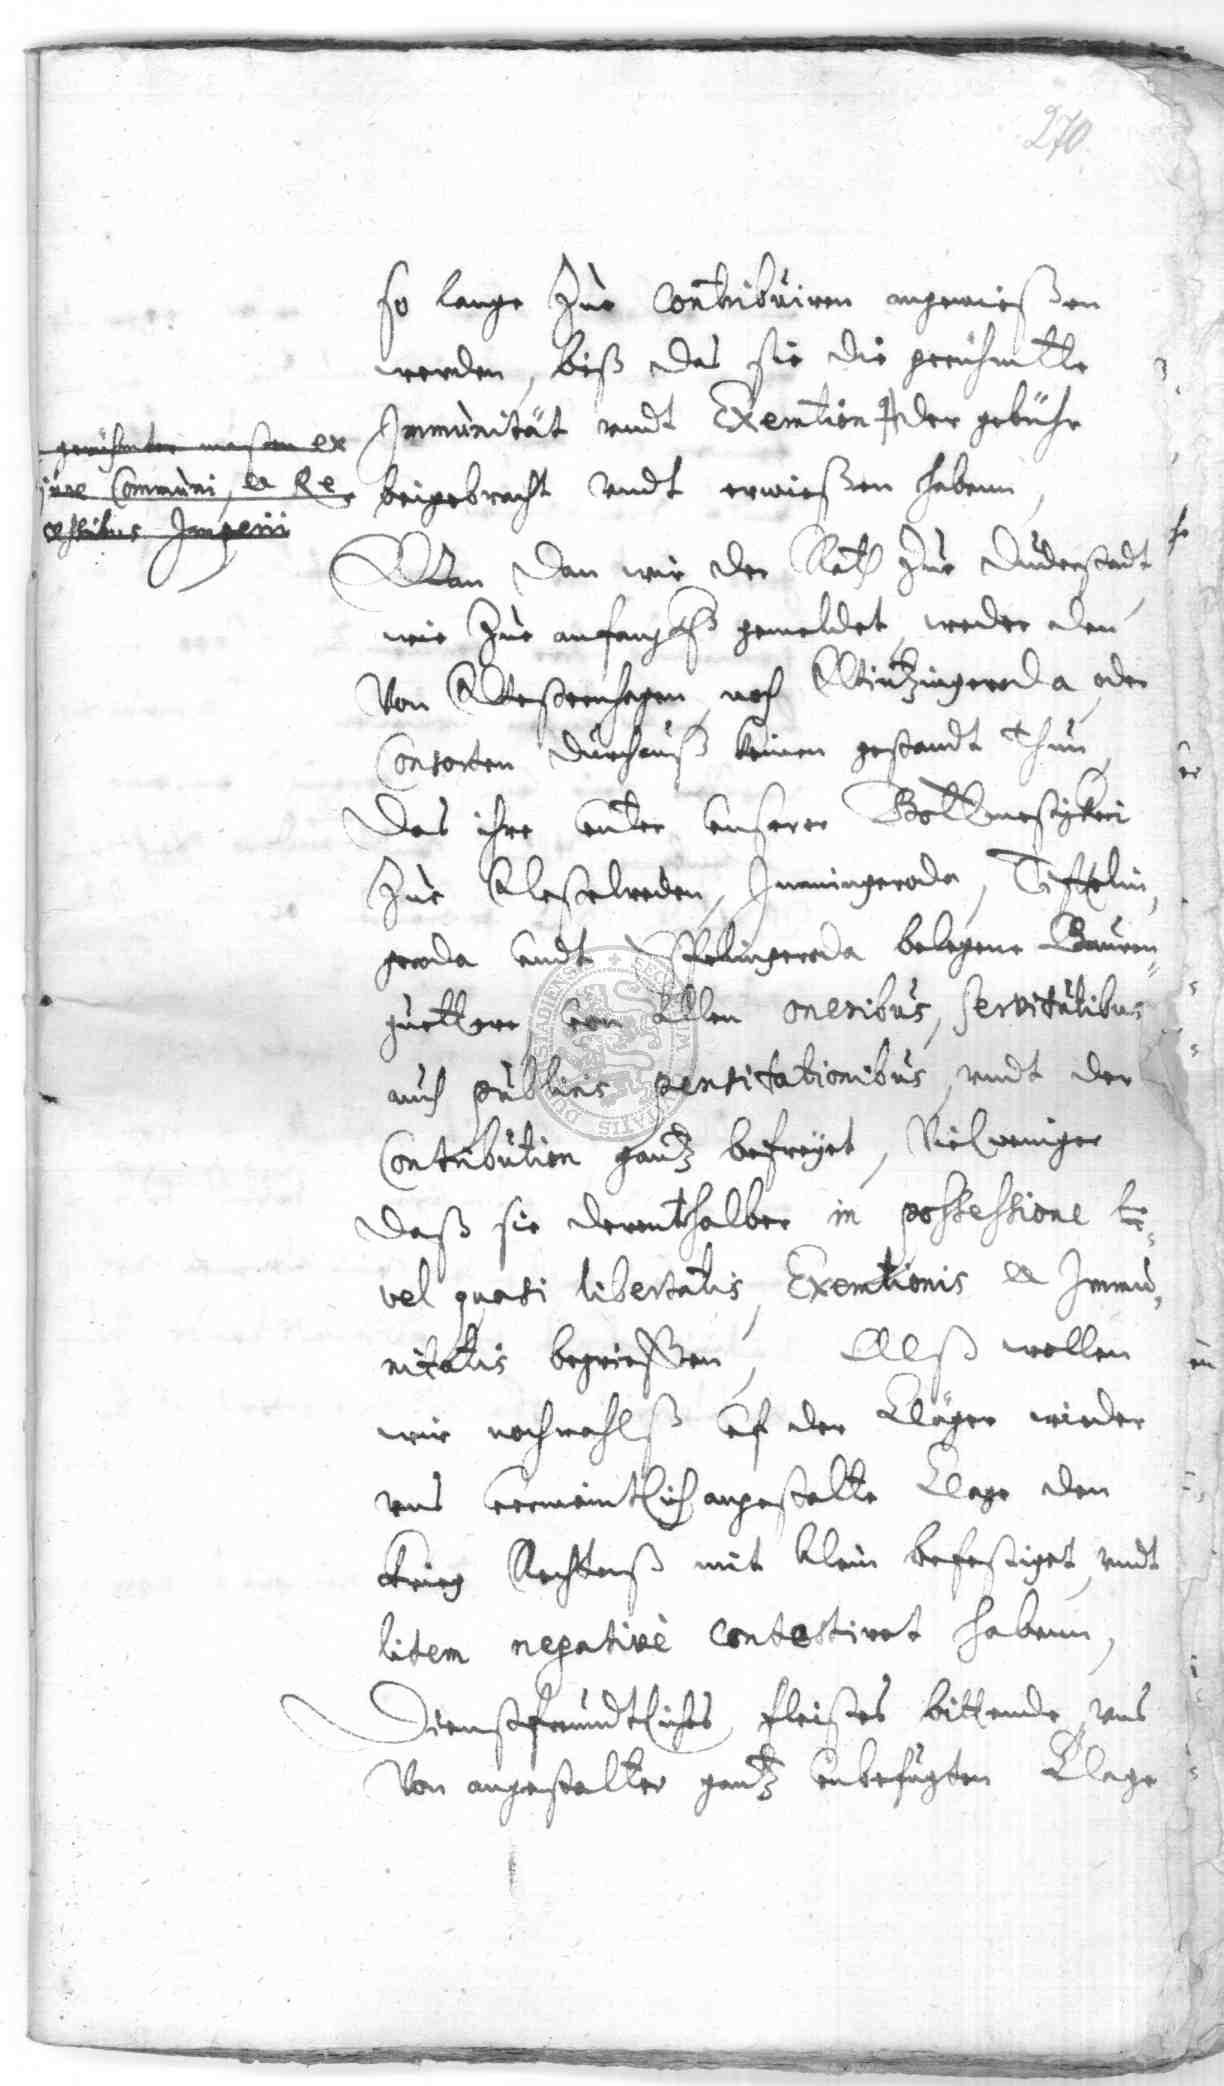 270
so lange Zue Contribuiren angewießen
werden, biß das sie die gerühmtte
Immunität undt Exemtion der gebühr
gerühmter maßen ex
jure Communi, et Re¬
cessibus Imperii
beigebracht undt erwießen habenn,
Wan dan wir der Rath Zue Duderstadt
wie Zue anfangß gemeldet, weder den
Von Westernhagen, noch Wintzingeroda, oder
Consorten durchauß keinen gestandt thun,
Das ihre unter unserer Bottmeßigkei
Zue Immingeroda, Tifftelin,
geroda undt belegene Bauren¬
guettere, von allen oneribus, servitutibus
auch publicis pensitationibus, undt der
Contribution gantz befreyet, Vielweniger
daß sie derenthalber in possessione
vel quasi libertatis, Exemtionis et Immu,
nitatis begrieffen, Alß wollen
wir nochmahlß uf der Kläger wieder
uns vermeintlich angestalte Klage den
krieg Rechtenß mit Klein befestiget, undt
litem negativè contestiret habenn,
Dienstfreundtliches fleißes bittende, uns
Von angestalter gantz unbefugten Klage